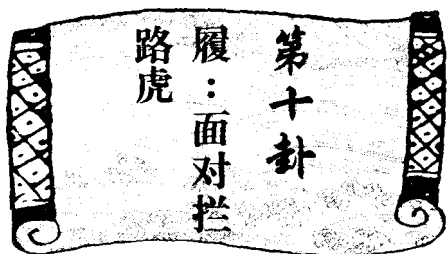 第十卦
履：面对拦
路虎